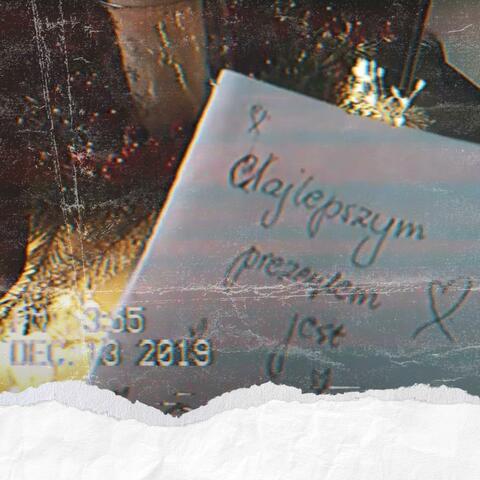 Najlepszym
prezentem
jest
PM 3:55
DEC. 13 2019